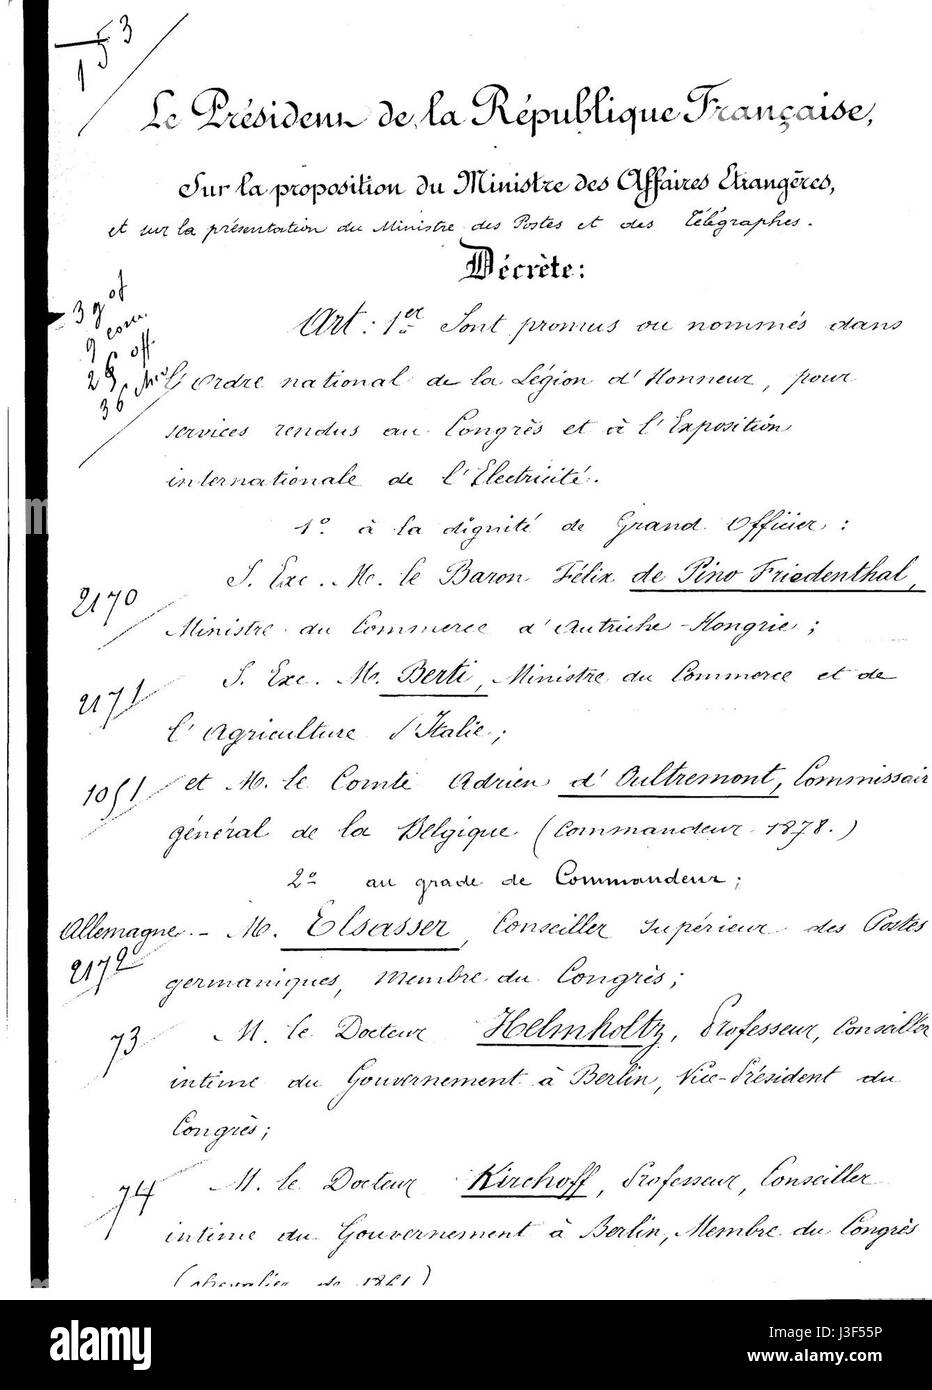 153
Le Président de la République Française,
Sur la proposition du Ministre des Affaires Etrangères,
et sur la présentation du Ministre des Postes et des Télégraphes.
Décrète:
3 g of
9 com.
26 off.
36 chev
Art: 1er Sont promus ou nommés dans
l'Ordre national de la Légion d'Honneur, pour
services rendus au Congrès et à l'Exposition
internationale de l'Electricité.
1º à la dignité de Grand Officier:
2170 S. Exc. M. le Baron Félix de Pino Friedenthal,
Ministre du Commerce d'Autriche-Hongrie;
2171 S. Exc. M. Berti, Ministre du Commerce et de
l'Agriculture d'Italie;
1051 et M. le Comte Adrien d'Oultremont, Commissair
général de la Belgique (Commandeur 1878.)
2º au grade de Commandeur;
Allemagne - M. Elsasser, Conseiller supérieur des Postes
2172 germaniques, membre du Congrès;
73 M. le Docteur Helmholtz, Professeur, Conseiller
intime du Gouvernement à Berlin, Vice-Président du
Congrès;
74 M. le Docteur Kirchoff, Professeur, Conseiller
intime du Gouvernement à Berlin, Membre du Congrès
(chevalier de 1861)
alamy stock photo
J3F55P
www.alamy.com